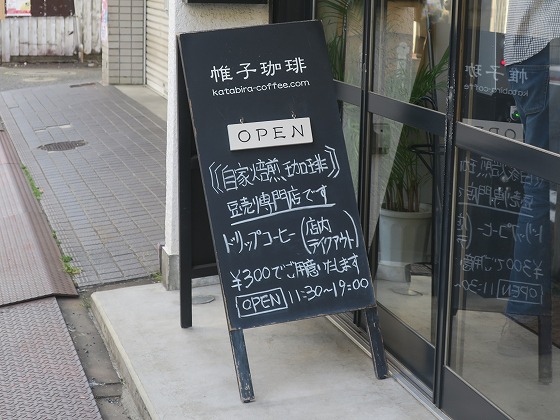 帷子珈琲
katabira-coffee.com
OPEN
《自家焙煎珈琲》
豆売り専門店です
ドリップコーヒー(店内 テイクアウト)
¥300でご用意いたします
OPEN 11:30〜19:00